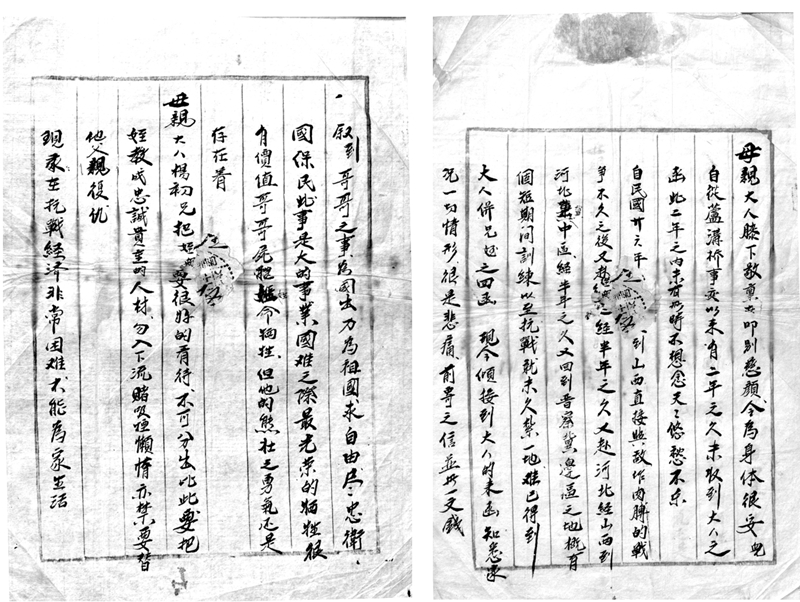 母親大人膝下敬稟者叩别慈顏今為身体很妥兒
自從蘆溝桥事变以来有二年之久未收到大人之
函此二年之内未有此時不想念天天悠愁不东
自民國廿六年 到山西直接與敵作肉膊的戰
爭不久之後又 经半年之久又赴河北经山西到
河北冀中區经半年之久又回到晋察冀邊區之地
個短期间訓練以至抗戰就未久禁一地难已得到
大人併兄 之四函 現今傾接到大人的来函知悉家
况一切情形很是悲痛前寄之信並卅一文錢
叙到哥哥之事為國出力為祖國求自由尽忠衛
國保民此事是大的事業國难之際最光荣的牺牲很
有價值哥哥死 命牺牲但他的熊壮之勇氣还是
存在着
母親大人楊初兄把姪 要很好的看待不可分出比此要把
姪教成忠誠貫 的人材勿入下流賭吸 懶惰亦禁要替
他父親復仇
現家在抗戰经济非常困难不能為家生活